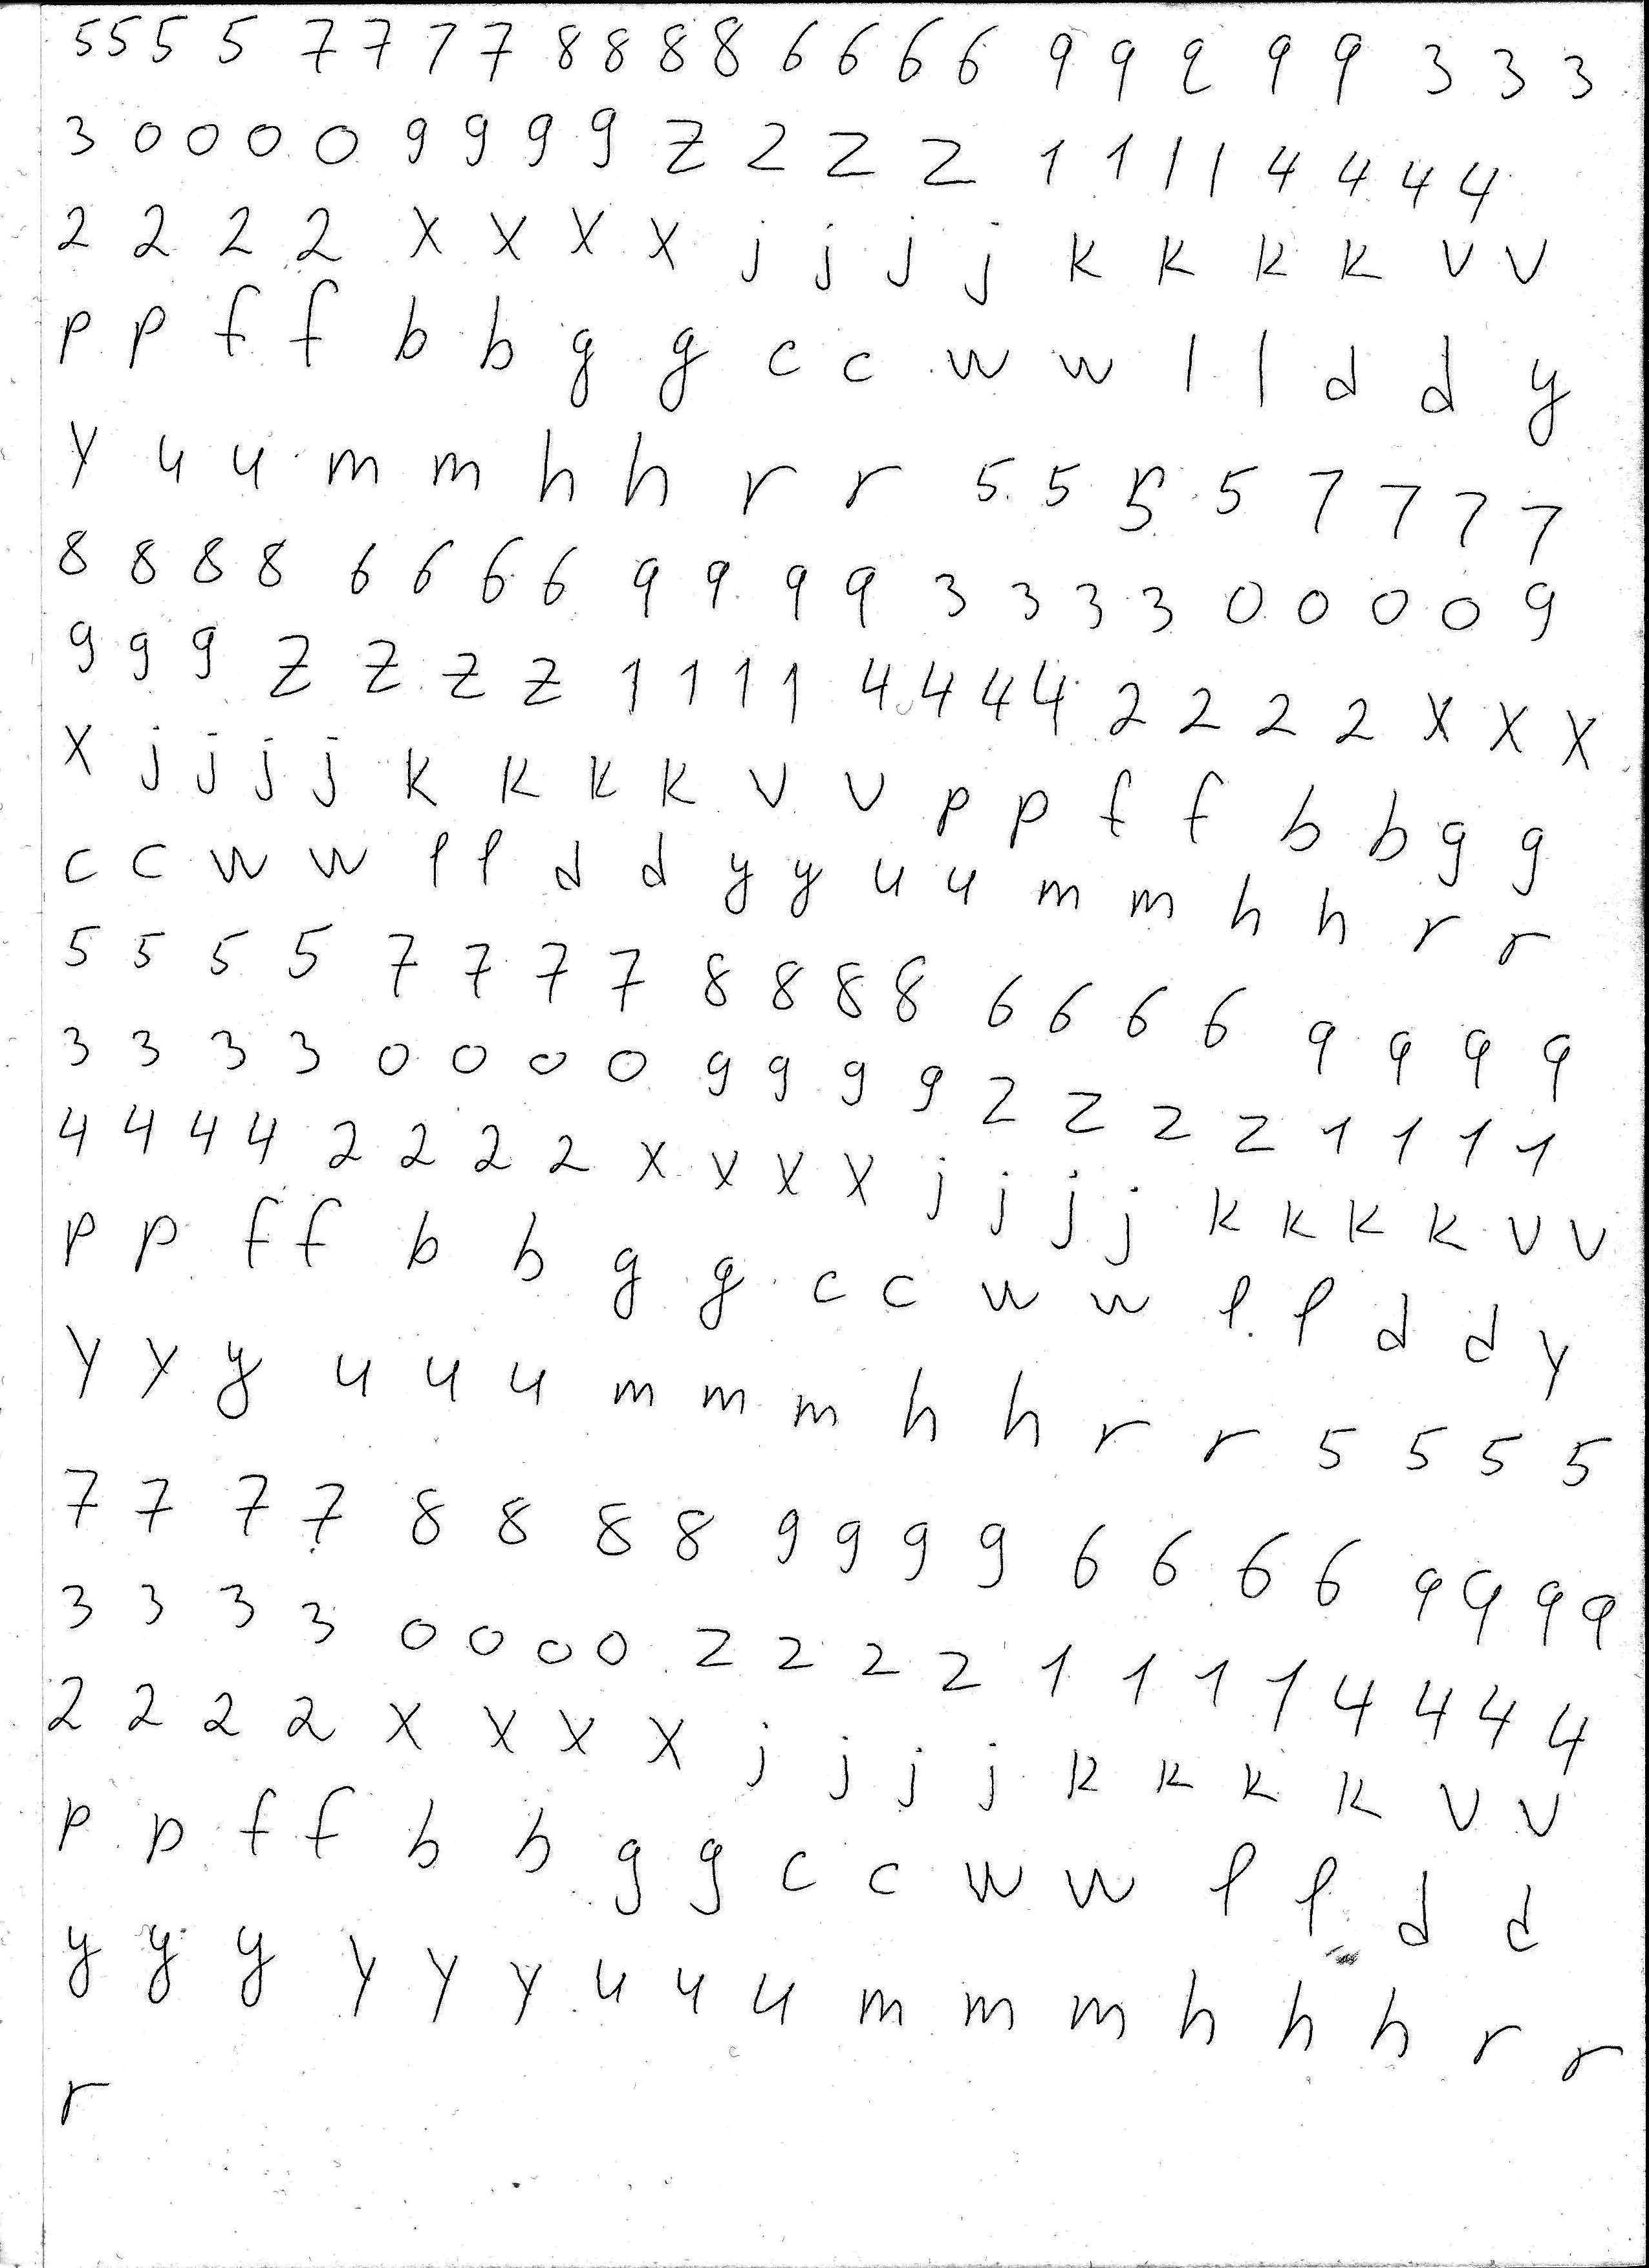 5 5 5 5 7 7 7 7 8 8 8 8 6 6 6 6 9 9 9 9 9 3 3 3
3 0 0 0 0 9 9 9 9 z z z z 1 1 1 1 4 4 4 4
2 2 2 2 x x x x j j j j k k k k v v
p p f f b b g g c c w w l l d d y
y u u m m h h r r 5 5 5 5 7 7 7 7
8 8 8 8 6 6 6 6 9 9 9 9 3 3 3 3 0 0 0 0 9
9 9 9 z z z z 1 1 1 1 4 4 4 4 2 2 2 2 x x x
x j j j j k k k k v v p p f f b b g g
c c w w l l d d y y u u m m h h r r
5 5 5 5 7 7 7 7 8 8 8 8 6 6 6 6 9 9 9 9
3 3 3 3 0 0 0 0 9 9 9 9 z z z z 1 1 1 1
4 4 4 4 2 2 2 2 x x x x j j j j k k k k v v
p p f f b b g g c c w w l l d d y
y y y u u u m m m h h r r 5 5 5 5
7 7 7 7 8 8 8 8 9 9 9 9 6 6 6 6 9 9 9 9
3 3 3 3 0 0 0 0 z z z z 1 1 1 1 4 4 4 4
2 2 2 2 x x x x j j j j k k k k v v
p p f f b b g g c c w w l l d d
y y y y y y u u u m m m h h h r r
r